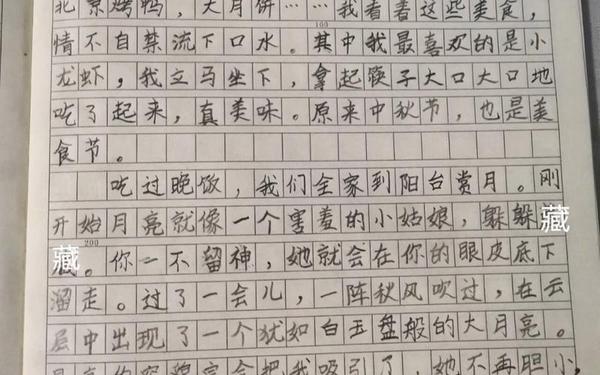 北京烤鸭，大月饼……我看着这些美食，
情不自禁流下口水。其中我最喜欢的是小
100
龙虾，我立马坐下，拿起筷子大口大口地
吃了起来，真美味。原来中秋节，也是美
食节。
吃过晚饭，我们全家到阳台赏月。刚
开始月亮就像一个害羞的小姑娘，躲躲藏
200
藏。你一不留神，她就会在你的眼皮底下
溜走。过了一会儿，一阵秋风吹过，在云
层中出现了一个犹如白玉盘般的大月亮。
把我吸引了，她不再胆小，